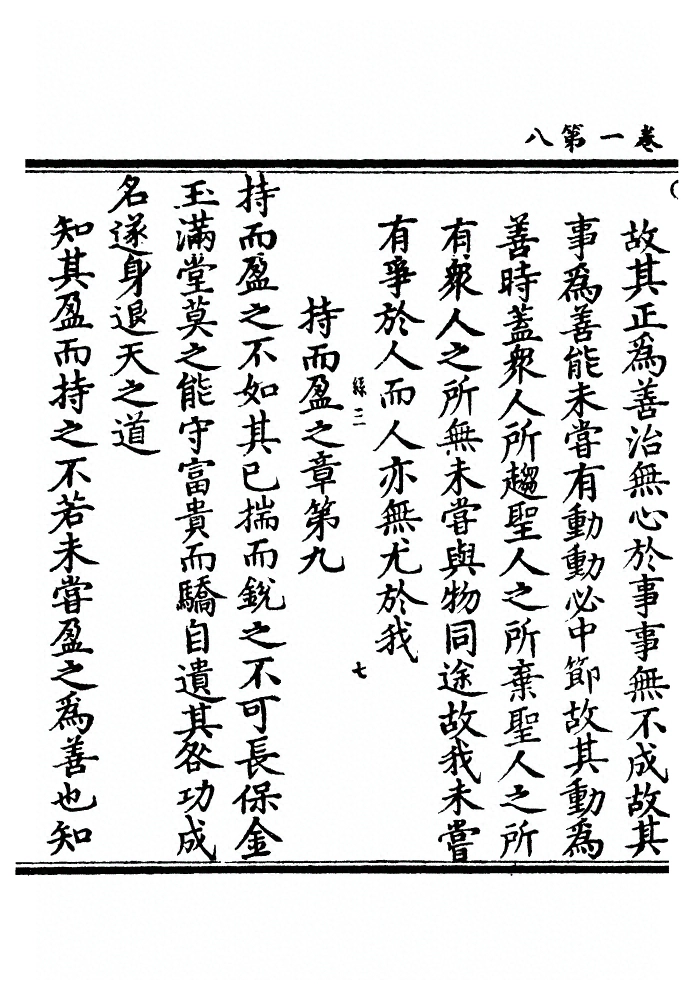 卷一第八
故其正爲善治無心於事事無不成故其
事爲善能未嘗有動動必中節故其動爲
善時蓋衆人所趨聖人之所棄聖人之所
有衆人之所無未嘗與物同途故我未嘗
有爭於人而人亦無尤於我
綵三
七
持而盈之章第九
持而盈之不如其已揣而銳之不可長保金
玉滿堂莫之能守富貴而驕自遺其咎功成
名遂身退天之道
知其盈而持之不若未嘗盈之爲善也知